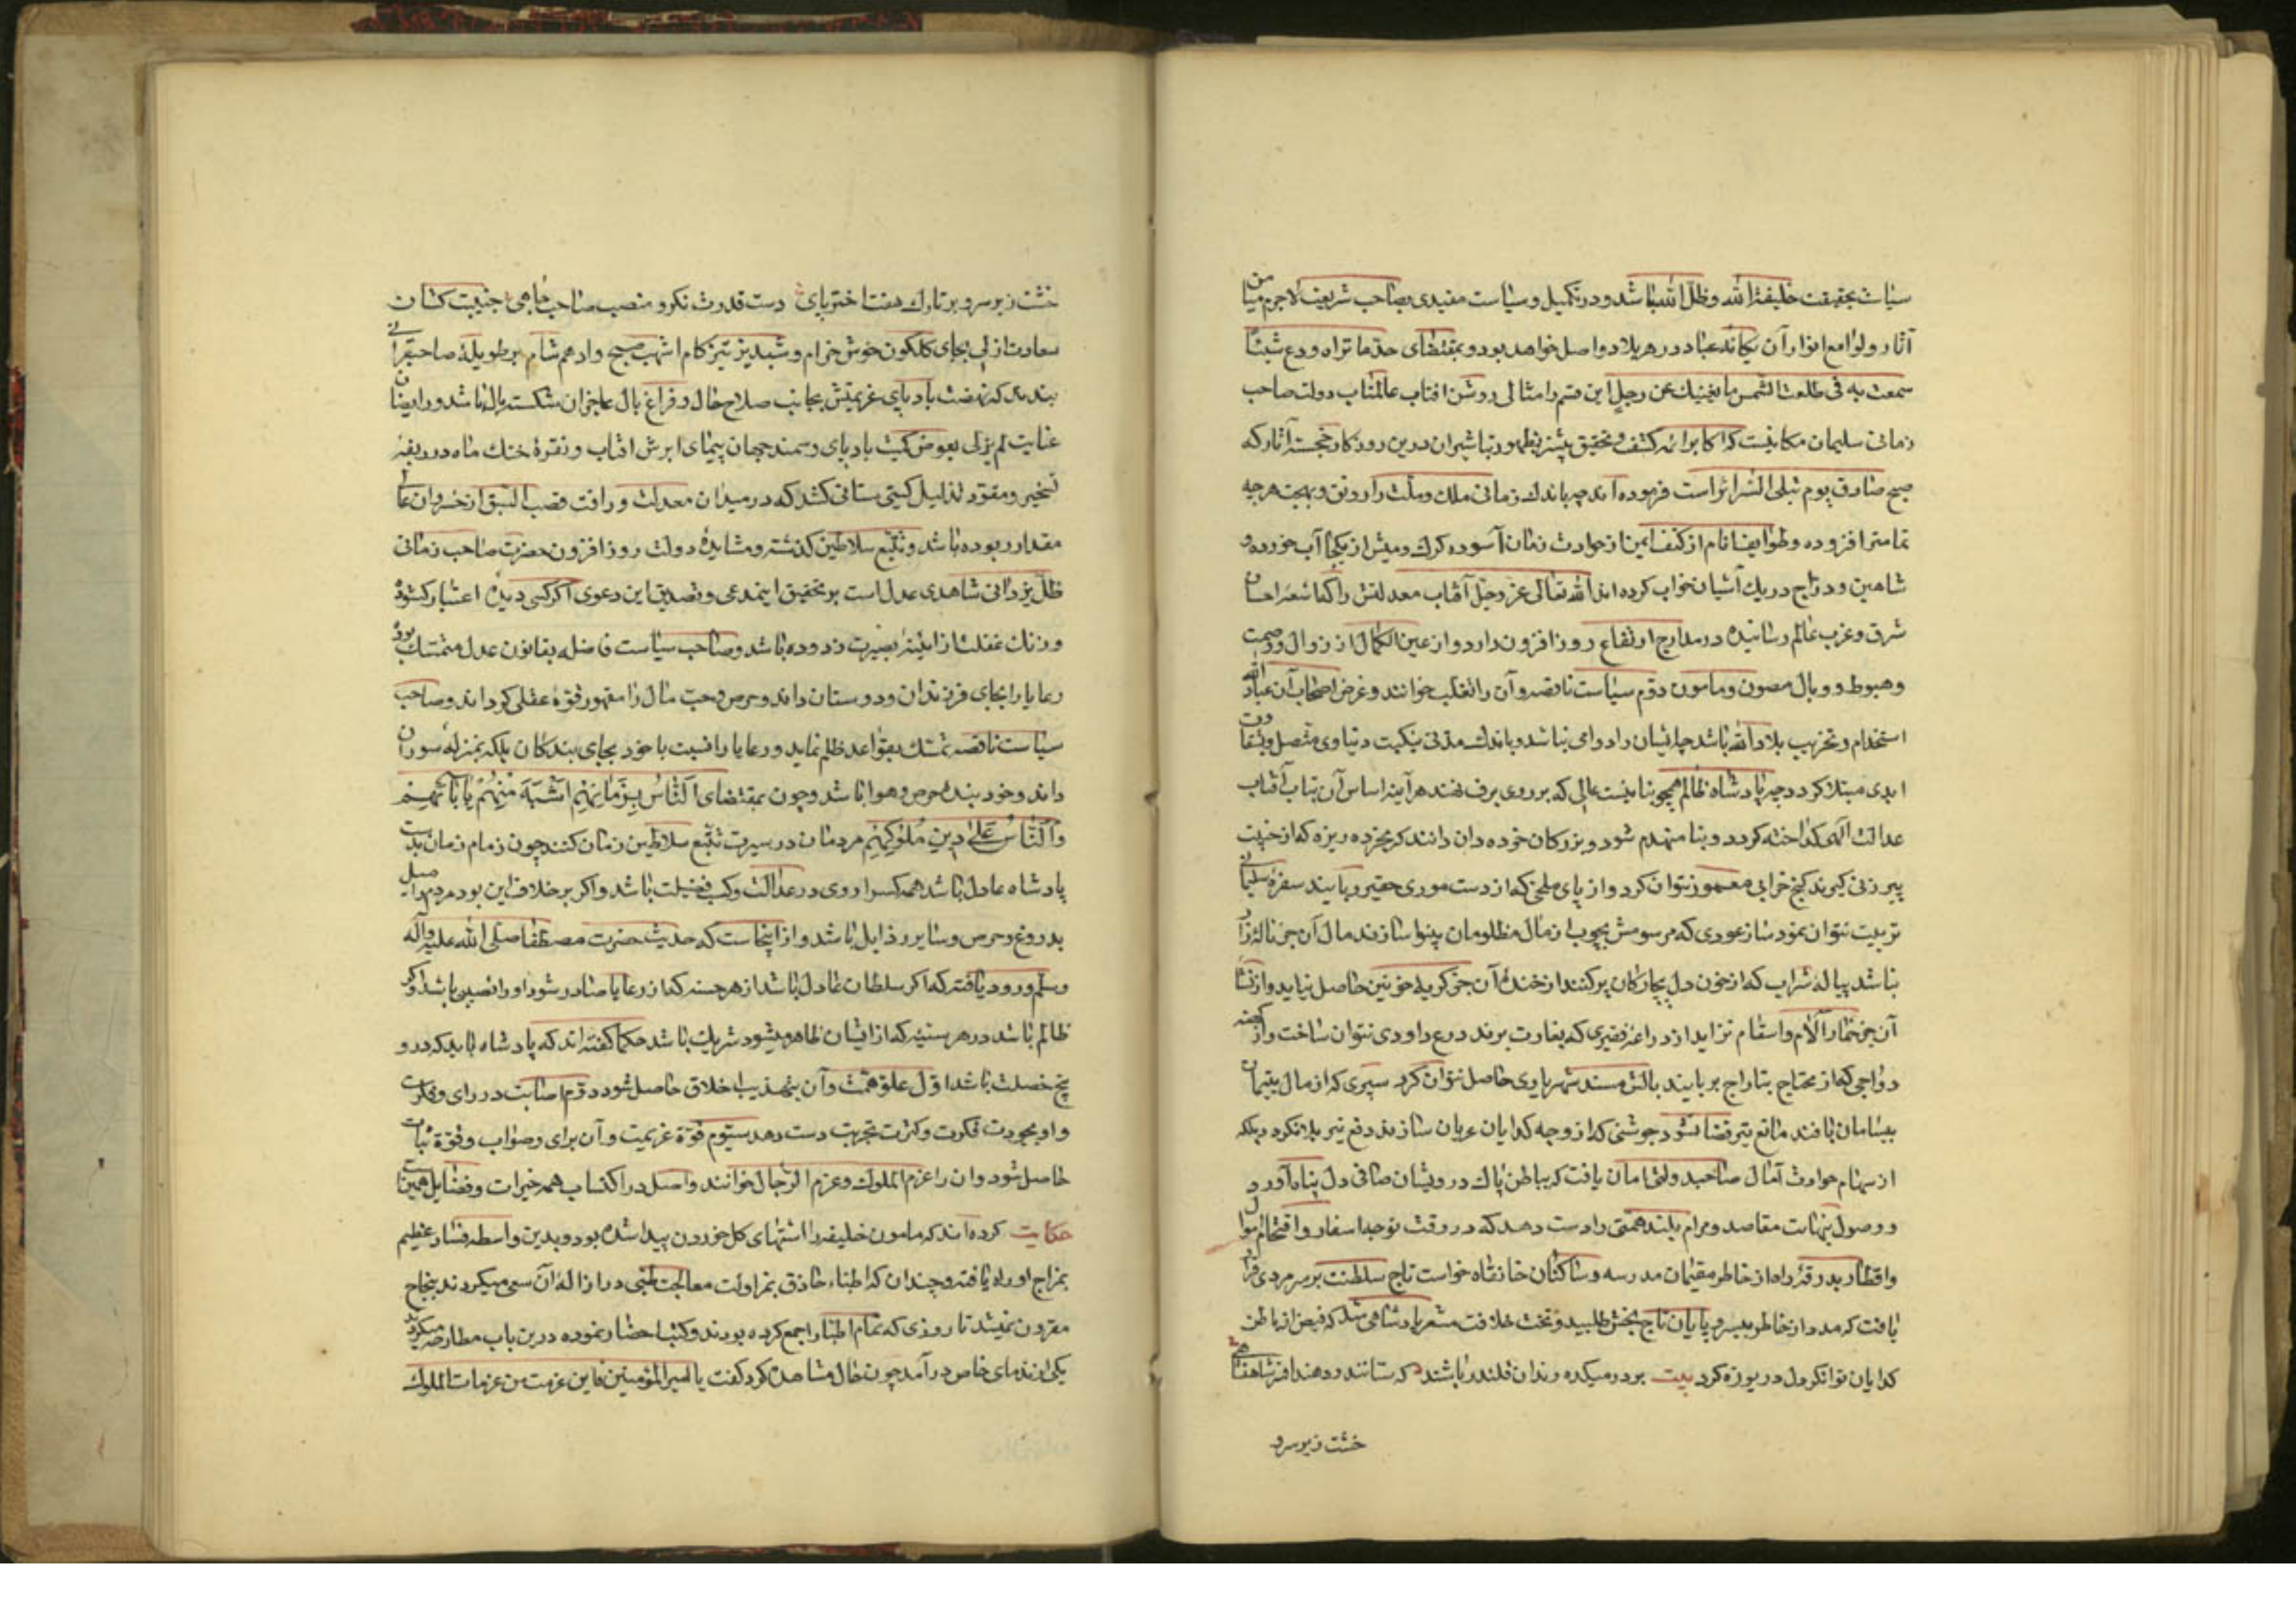 سیاست بحقیقت خلیفة الله وظلّ الله باشد و در تکمیل وسیاست مقتدی بصاحب شریعت لاجرم میامن
آثار و لوامع انوار آن بکافه عباد در هر بلاد واصل خواهد بود و بمقتضای خذ ما تراه و دع شیئا
سمعت به فی طلعة الشمس ما یغنیك عن زحل این قسم را مثالی روشن افتاب عالمتاب دولت صاحب
زمانی سلیمان مکانیست که اکابر ائمه کشف و تحقیق پیشتر بظهور تباشیر آن درین روزکار خجسته آثار که
صبح صادق یوم تبلی السرائر است فرموده اند چه باندك زمانی ملك و ملّت را رونق و بهجت هر چه
تمامتر افزوده و طوایف انام از کنف ایمن از حوادث زمان آسوده کرك و میش از یکجا آب خورده و
شاهین و درّاج در یك آشیان خواب کرده اند الله تعالی عزّ وجلّ آفتاب معدلتش را که اشعه احسان
شرق و غرب عالم رسانیده در مدارج ارتفاع روز افزون دارد و از عین الکمال از زوال و وصمت
وهبوط و وبال مصون و مامون دوّم سیاست ناقصه و آن را تغلب خوانند و غرض اصحاب آن عباد الله
استخدام و تخریب بلاد الله باشد چه ایشان را دوامی نباشد و باندك مدتی بنکبت دنیاوی متصل و بشقاوت
ابدی مبتلا کردد چه پادشاه ظالم همچو بنائیست عالی که بر روی برف نهند هر آینه اساس آن بتاب آفتاب
عدالت الهی کداخته کردد و بنا منهدم شود و بزرکان خرده دان دانند که بخرده ریزه که از خیبت
پیر زنی کیرند کنج خرابی معمور نتوان کرد و از پای ملخی که از دست موری حقیر ربایند سفره سلیمانی
تربیت نتوان نمود ساز عودی که مرسومش بچوب از مال مظلومان بینوا سازند مال آن جز ناله زار
نباشد پیاله شراب که از خون دل بیچارکان پر کنند از خنده آن جز کریه خونین حاصل نیاید و از نشاء
آن جز خمار آلام و اسقام نزاید از دراعه فقیری که بغارت برند درع داودی نتوان ساخت و از کهنه
دواجی که از محتاج بتاراج بربایند بالش مسند شهریاری حاصل نتوان کرد سپری که از مال یتیمان
بیسامان بافند مانع تیر قضا نشود جوشنی که از وجه کدایان عریان سازند دفع تیر بلا نکرد بلکه
از سهام حوادث آمال صاحبدولتی امان یافت که بباطن پاك درویشان صافی دل پناه آورد
و وصول بنهایت مقاصد و مرام بلند همتی را دست دهد که در وقت توجه اسفار و اقتحام موارد
و اقطار بدرقه راه از خاطر مقیمان مدرسه و ساکنان خانقاه خواست تاج سلطنت بر سر مردی قرار
یافت که مدد از خاطر بیسر و پایان تاج بخش طلبید و تخت خلافت مستقر پادشاهی شد که فیض از باطن
کدایان توانکر دل دریوزه کرد بیت بر در میکده رندان قلندر باشند که ستانند و دهند افسر شاهنشاهی
خشت زیر سر و
خشت زیر سر و بر تارك هفت اختر پای دست قدرت نکر و منصب صاحب جاهی جنیبت کشان
سعادت ازلی بجای کلکون خوش خرام و شبدیز تیز کام اشهب صبح و ادهم شام بر طویله صاحبقرانی
بندند که نهضت باد پای عزیمتش بجانب صلاح حال و فراغ بال عاجزان شکسته بال باشد و رایضان
عنایت لم یزلی بعوض کمیت باد پای و سمند جهان پیمای ابرش افتاب و نقره خنك ماه در ربقه
تسخیر و مقود تذلیل کیتی ستانی کشد که در میدان معدلت و رافت قصب السبق از خسروان عالی
مقدار ربوده باشد و تتبع سلاطین کذشته و مشاهده دولت روز افزون حضرت صاحب زمانی
ظلّ یزدانی شاهدی عدل است بر تحقیق این مدعی و تصدیق این دعوی اکر کسی دیده اعتبار کشوده
و زنك غفلت از اینه بصیرت زدوده باشد و صاحب سیاست فاضله بقانون عدل متمسك بود
رعایا را بجای فرزندان و دوستان داند و حرص و حب مال را مقهور قوه عقلی کرداند و صاحب
سیاست ناقصه تمسك بقواعد ظلم نماید و رعایا را نسبت با خود بجای بندکان بلکه بمنزله ستوران
داند و خود بنده حرص و هوا باشد و چون بمقتضای اَلنّاسُ بِزَمانِهِم اَشبَهُ مِنهُم بِآبائِهِم
وَالنّاسُ عَلی دینِ مُلُوکِهِم مردمان در سیرت تتبع سلاطین زمان کنند چون زمام زمان بدست
پادشاه عادل باشد همه کس را روی در عدالت و کسب فضیلت باشد و اکر بر خلاف این بود مردم را میل
بدروغ و حرص و سایر رذایل باشد و از اینجاست که حدیث حضرت مصطفا صلی الله علیه وآله
وسلم ورود یافته که اکر سلطان عادل باشد از هر حسنه که از رعایا صادر شود او را نصیبی باشد و اکر
ظالم باشد در هر سیئه که از ایشان ظاهر میشود شریك باشد حکما کفته اند که پادشاه باید که در و
پنج خصلت باشد اوّل علو همّت و آن بتهذیب اخلاق حاصل شود دوّم اصابت در رای و فکرت
و او بجودت فکرت و کثرت تجربت دست دهد سیّوم قوّة عزیمت و آن برای و صواب و قوّة ثبات
حاصل شود و ان را عزم الملوك و عزم الرجال خوانند و اصل در اکتساب همه خیرات و فضایل همین است
حکایت کرده اند که مامون خلیفه را اشتهای کل خوردن پیدا شده بود و بدین واسطه فساد عظیم
بمزاج او راه یافته و چندان که اطباء حاذق بمزاولت معالجت طبی در ازاله آن سعی میکردند بنجاح
مقرون نمیشد تا روزی که تمام اطبا را جمع کرده بودند و کتب احضار نموده درین باب مطارحه میکرد
یکی از ندمای خاص در آمد چون حال مشاهده کرد کفت یا امیر المؤمنین فاین عزمت من عزمات الملوك